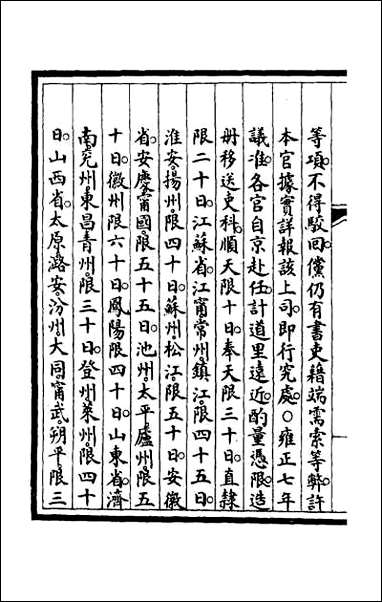 等項。不得駮回。儻仍有書吏藉端需索等弊。許
本官據實詳報該上司。即行究處。○雍正七年
議准。各官自京赴任。計道里遠近。酌量憑限。造
册移送吏科。順天限十日。奉天限三十日。直隸
限二十日。江蘇省。江甯常州。鎮江。限四十五日。
淮安。揚州限四十日。蘇州松江。限五十日。安徽
省。安慶甯國。限五十五日。池州。太平。廬州。限五
十日。徽州限六十日。鳳陽限四十日。山東省。濟
南。兖州。東昌青州。限三十日。登州。萊州。限四十
日。山西省。太原。潞安。汾州大同甯武。朔平。限三